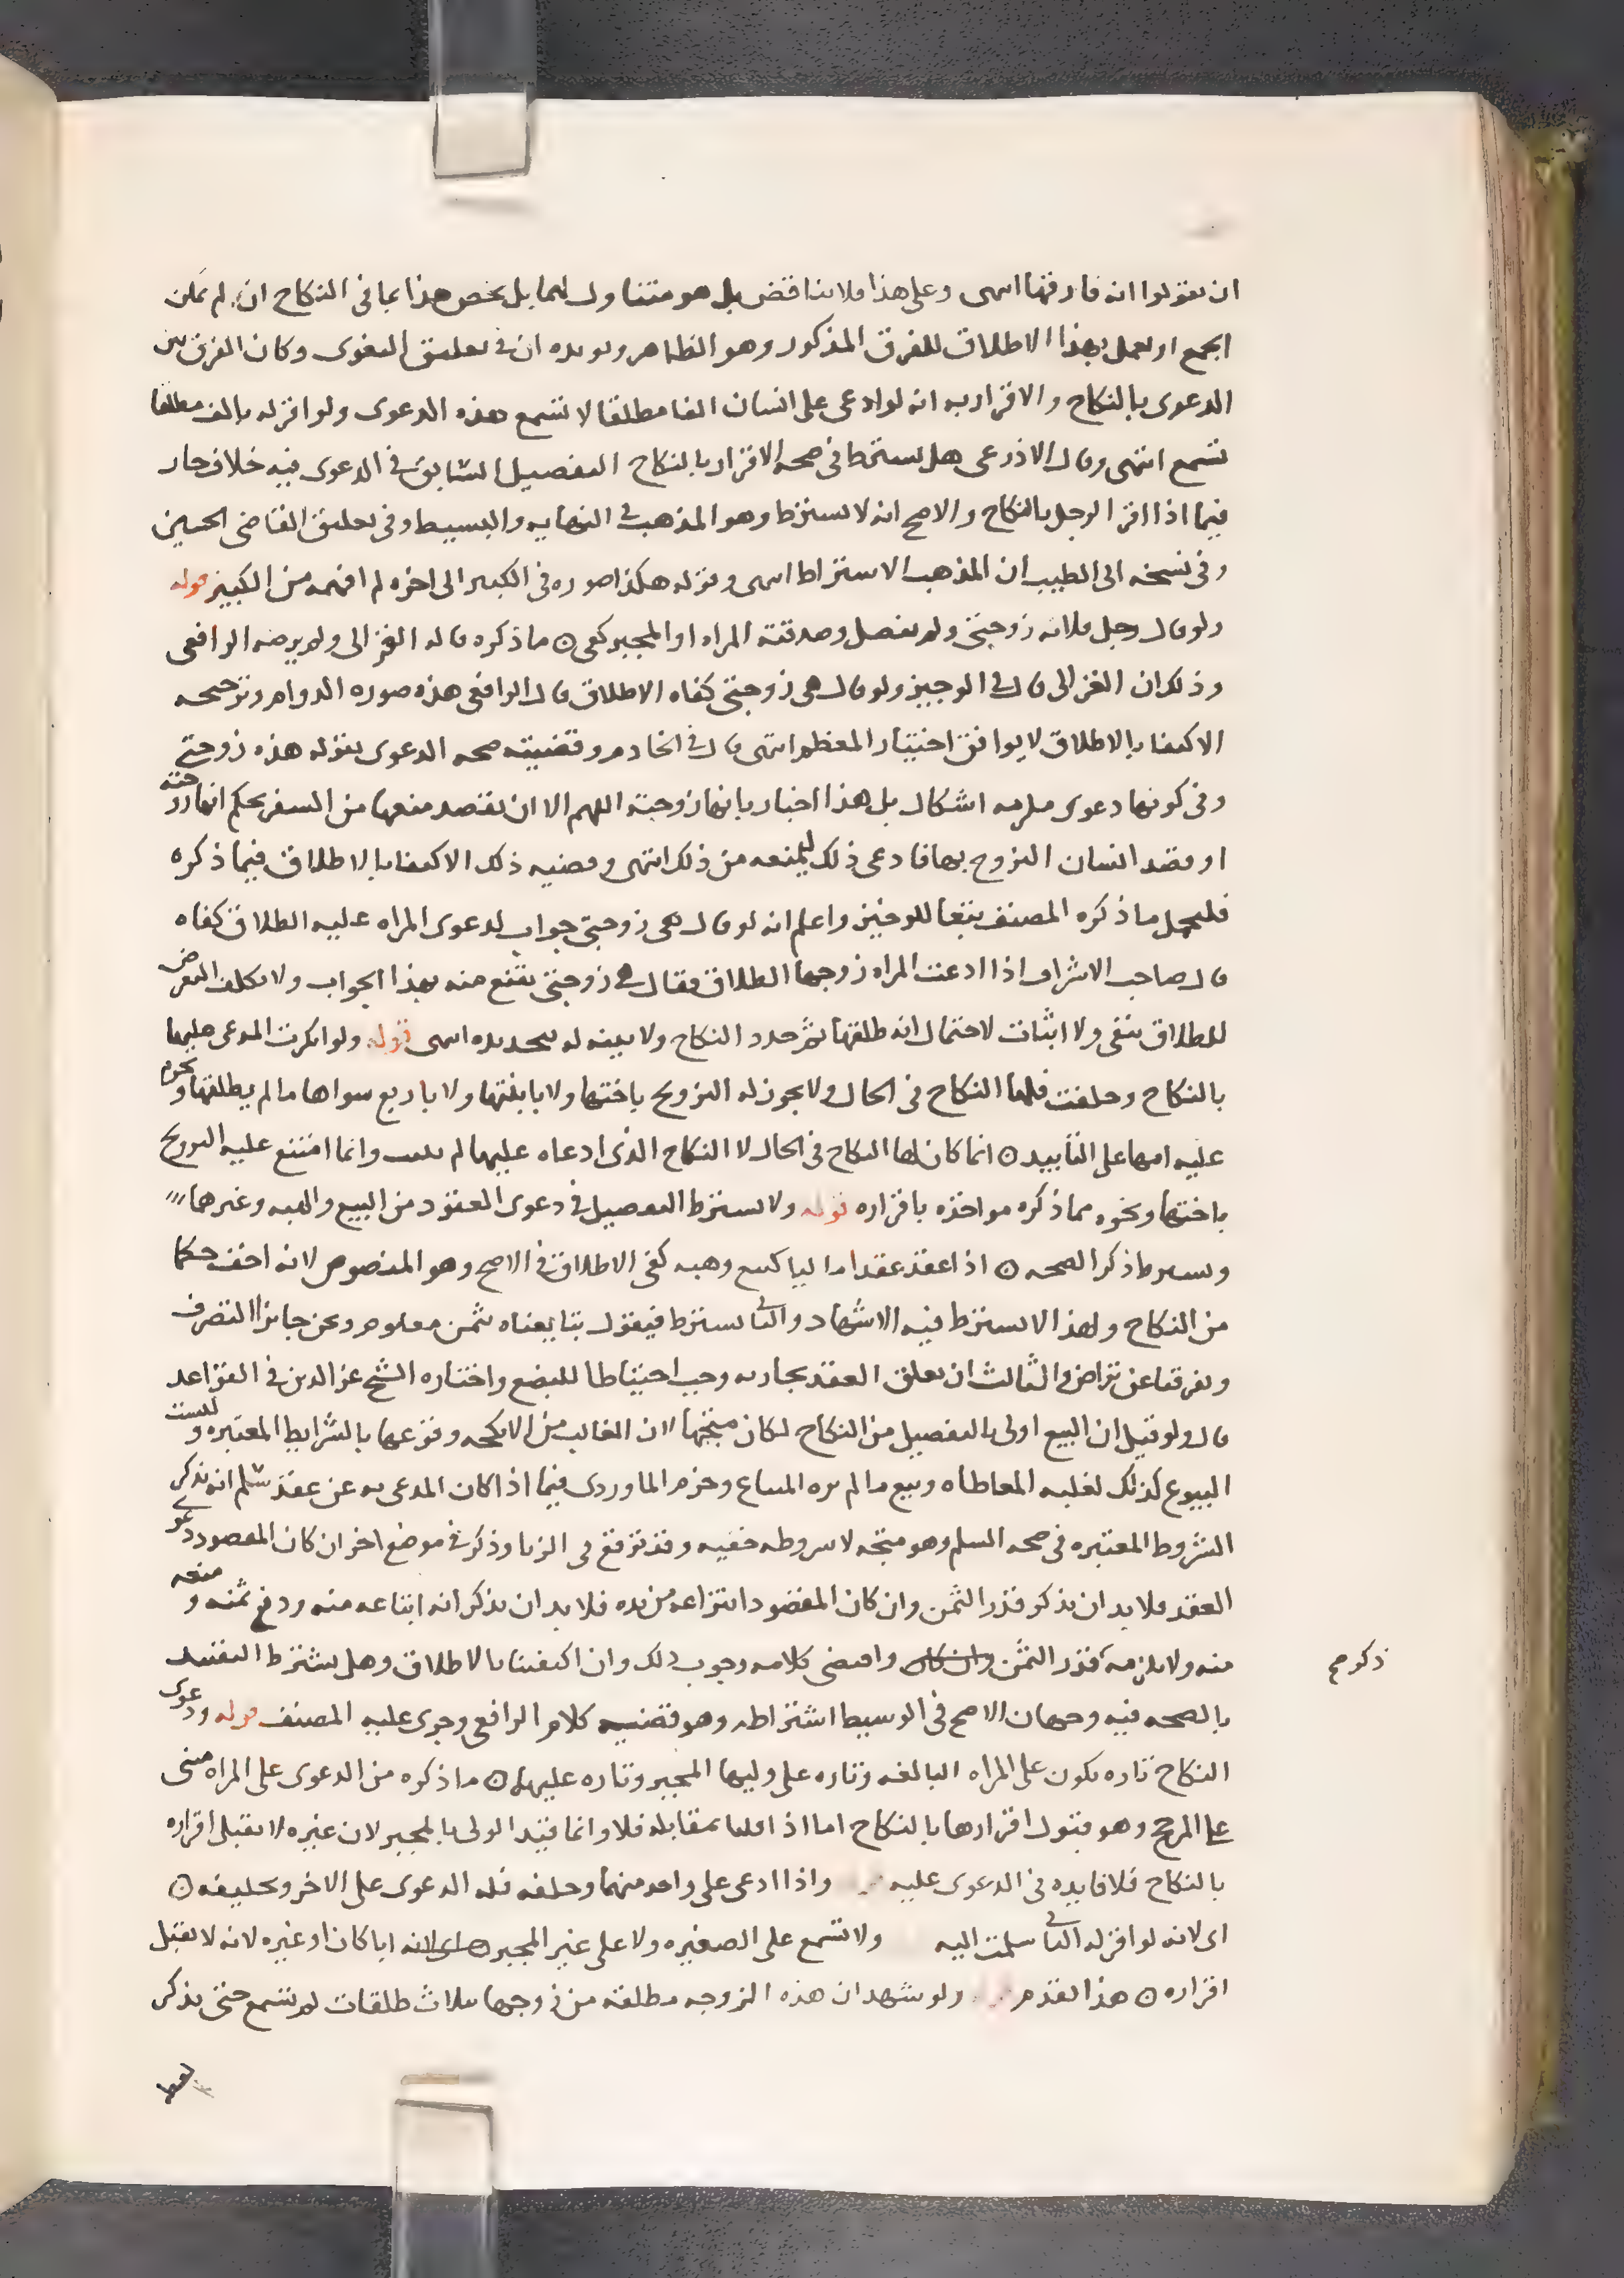 ان يقولوا انه فارقها انتهى وعلى هذا فلا تناقض بل هو متناول لهما بل يخص هذا بما في النكاح ان لم يمكن
الجمع او يعمل بهذا الاطلاق للفرق المذكور وهو الظاهر ويويده ان في تعليق البغوى وكان الفرق بين
الدعوى بالنكاح والاقرار به انه لو ادعى على انسان الفا مطلقا لا تسمع هذه الدعوى ولو اقر له بالف مطلقا
تسمع انتهى وقال الاذرعى هل يشترط في صحه الاقرار بالنكاح التفصيل السابق في الدعوى فيه خلاف جار
فيما اذا اقر الرجل بالنكاح والاصح انه لا يشترط وهو المذهب في النهايه والبسيط وفي تعليق القاضى الحسين
وفي نسخه الى الطيب ان المذهب الاشتراط انتهى وقوله هكذا صوره في الكبير الى اخره لم افهمه من الكبير قوله
ولو قال رجل فلانه زوجتى ولم يفصل وصدقته المراه او المجبر كفى ما ذكره قاله الغزالى ولم يرضه الرافعى
وذلك ان الغزالى قال في الوجيز ولو قال هى زوجتى كفاه الاطلاق قال الرافعى هذه صوره الدوام وترجيحه
الاكتفا بالاطلاق لا يوافق اختيار المعظم انتهى قال في الخادم وقضيته صحه الدعوى بقوله هذه زوجتى
وفي كونها دعوى ملزمه اشكال بل هذا اخبار بانها زوجته اللهم الا ان يقصد منعها من السفر بحكم انها زوجته
او قصد انسان التزوج بها فادعى ذلك ليمنعه من ذلك انتهى وقضيه ذلك الاكتفا بالاطلاق فيما ذكره
فليحمل ما ذكره المصنف تبعا للوجيز واعلم انه لو قال هى زوجتى جواب لدعوى المراه عليه الطلاق كفاه
قال صاحب الاشراف اذا ادعت المراه زوجها الطلاق فقال هي زوجتى يقنع منه بهذا الجواب ولا يكلف التعرض
للطلاق بنفى ولا اثبات لاحتمال انه طلقها ثم جدد النكاح ولا بينه له بتجديده انتهى قوله ولو انكرت المدعى عليها
بالنكاح وحلفت فلها النكاح في الحال ولا يجوز له التزويج باختها ولا بابنتها ولا باربع سواها ما لم يطلقها ويحرم
عليه امها على التأبيد انما كان لها النكاح في الحال لان النكاح الذى ادعاه عليها لم يثبت وانما امتنع عليه التزويج
باختها ونحوه مما ذكره مواخذه باقراره قوله ولا يشترط التفصيل في دعوى العقود من البيع والهبه وغيرها
ويشترط ذكر الصحه اذا عقد عقدا ماليا كبيع وهبه كفى الاطلاق في الاصح وهو المنصوص لانه اخف حكما
من النكاح ولهذا لا يشترط فيه الاشهاد والثانى يشترط فيقول تبايعناه بثمن معلوم ونحن جايزا التصرف
وتفرقنا عن تراض والثالث ان تعلق العقد بجاريه وجب احتياطا للبضع واختاره الشيخ عز الدين في القواعد
قال ولو قيل ان البيع اولى بالتفصيل من النكاح لكان متجها لان الغالب من الانكحه وقوعها بالشرايط المعتبره وليست
البيوع كذلك لغلبه المعاطاه وبيع ما لم يره المبتاع وجزم الماوردى فيما اذا كان المدعى به عن عقد سلم انه يذكر
الشروط المعتبره في صحه السلم وهو متجه لاشروطه خفيه وقد توقع فى الربا وذكر في موضع اخر ان كان المقصود دعوى
العقد فلا بد ان يذكر قدر الثمن وان كان المقصود انتزاعه من يده فلا بد ان يذكر انه ابتاعه منه ودفع ثمنه ومنعه
منه ولا يلزمه قدر الثمن وان كان واقتضى كلامه وجوب ذلك وان اكتفينا بالاطلاق وهل يشترط التقييد
ذكر صح
بالصحه فيه وجهان الاصح في الوسيط اشتراطه وهو قضيه كلام الرافعى وجرى عليه المصنف قوله ودعوى
النكاح تاره تكون على المراه البالغه وتاره على وليها المجبر وتاره عليهما ما ذكره من الدعوى على المراه مبنى
على المرجح وهو قبول اقرارها بالنكاح اما اذا قلنا بمقابله فلا وانما قيد الولى بالمجبر لان غيره لا يقبل اقراره
بالنكاح فلا فايده في الدعوى عليه واذا ادعى على واحد منهما وحلفه فله الدعوى على الاخر وتحليفه
اى لانه لو اقر له الثانى سلمت اليه ولا تسمع على الصغيره ولا على غير المجبر ابا كان او غيره لانه لا يقبل
اقراره هذا تقدم ولو شهد ان هذه الزوجه مطلقه من زوجها بثلاث طلقات لم تسمع حتى يذكر